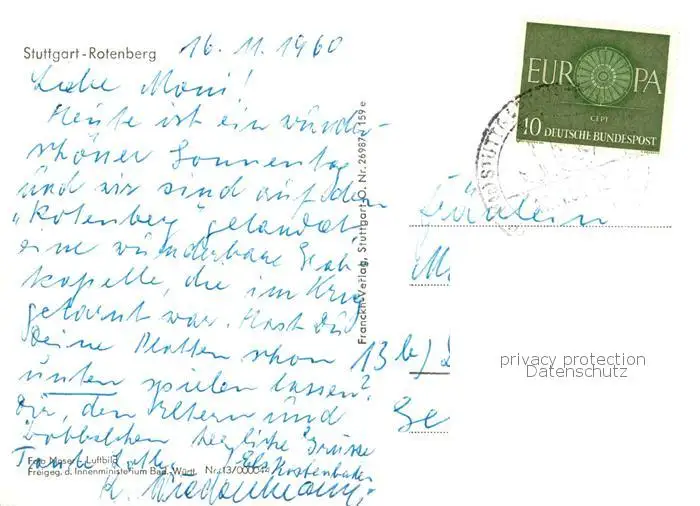 Stuttgart-Rotenberg
16.11.1960
Liebe Moni!
Heute ist ein wunder-
schöner Sonnentag
und wir sind auf dem
"Rotenberg" gelandet
eine wunderbare Grab-
kapelle, die im Krieg
getarnt war. Hast Du
Deine Platten schon
unten spielen lassen?
Dir, den Eltern und
herzliche Grüsse
Tante
Foto Moser Luftbild
Freigeg. d. Innenministerium Bad.-Württ. Nr. 13/000
Franckh-Verlag, Stuttgart-O. Nr. 26987/159 e
EUROPA
CEPT
10 DEUTSCHE BUNDESPOST
Fräulein
M
13 b)
Ge
privacy protection
Datenschutz